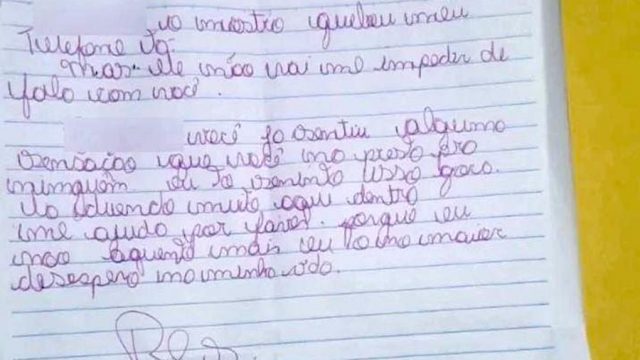 o mostro quebeu meu
Telefone Jó.
mas ele não vai me impeder de
falo com você.
você ja sentiu alguma
sensação que você não presto pro
ninguém eu to sentindo isso goro.
to duendo muito aqui dentro
me ajudo por favor. porque eu
nao aguento mais eu to no maior
desespero na minha vida.